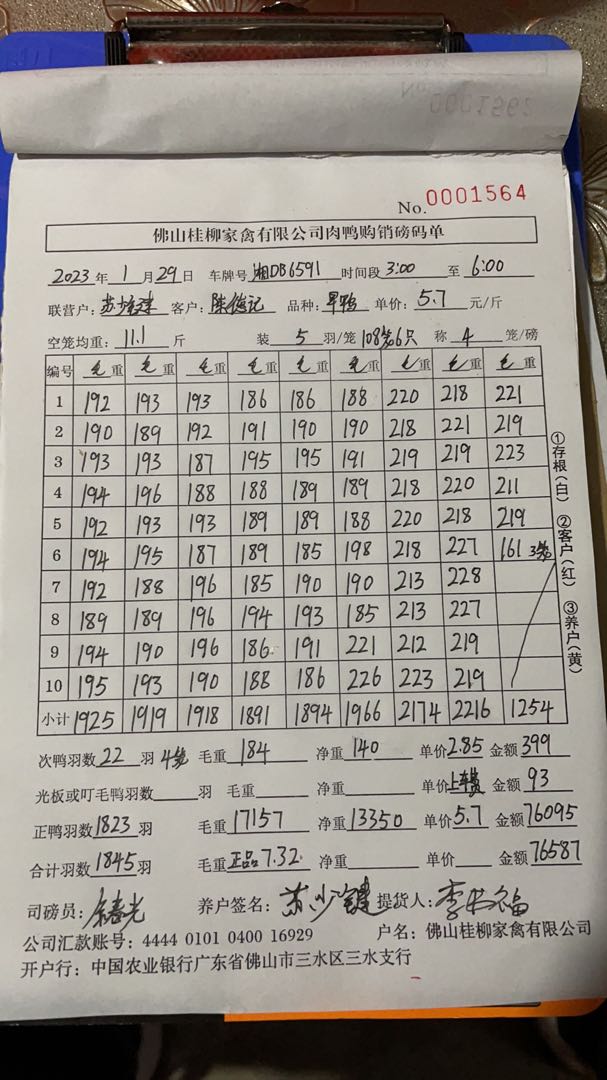 No. 0001564
佛山桂柳家禽有限公司肉鸭购销磅码单
2023 年 1 月 29 日 车牌号 湘DB6591 时间段 3:00 至 6:00
联营户: 苏少 客户: 陈德记 品种: 旱鸭 单价: 5.7 元/斤
空笼均重: 11.1 斤 装 5 羽/笼 108笼6只 称 4 笼/磅
编号 毛重 毛重 毛重 毛重 毛重 毛重 毛重 毛重 毛重
1 192 193 193 186 186 188 220 218 221
2 190 189 192 191 190 190 218 221 219
3 193 193 187 195 195 191 219 219 223
4 194 196 188 188 189 189 218 220 211
5 192 193 193 189 189 188 220 218 219
6 194 195 187 189 185 198 218 227 161 3笼
7 192 188 196 185 190 190 213 228
8 189 189 196 194 193 185 213 227
9 194 190 196 186 191 221 212 219
10 195 193 190 188 186 226 223 219
小计 1925 1919 1918 1891 1894 1966 2174 2216 1254
次鸭羽数 22 羽 4笼 毛重 184 净重 140 单价 2.85 金额 399
光板或叮毛鸭羽数 羽 毛重 净重 单价 上车费 金额 93
正鸭羽数 1823 羽 毛重 17157 净重 13350 单价 5.7 金额 76095
合计羽数 1845 羽 毛重 正品7.32 净重 单价 金额 76587
司磅员: 养户签名: 苏少 提货人: 李
公司汇款账号: 4444 0101 0400 16929 户名: 佛山桂柳家禽有限公司
开户行: 中国农业银行广东省佛山市三水区三水支行
①存根(白) ②客户(红) ③养户(黄)